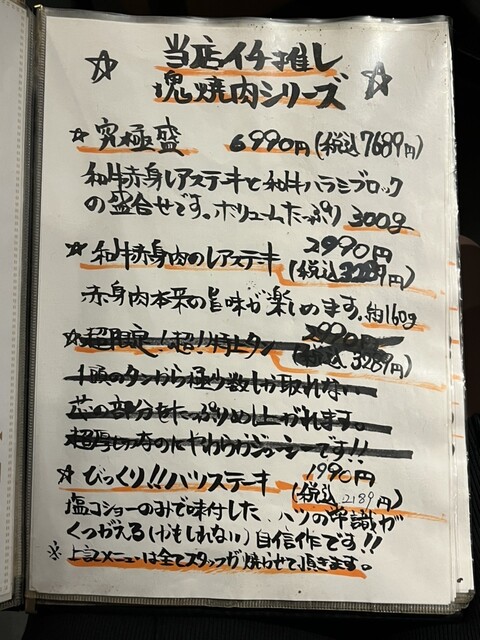 ☆ 当店イチ推し ☆
塊焼肉シリーズ
☆ 究極盛 6990円(税込7689円)
和牛赤身レアステーキと和牛ハラミブロック
の盛合せです。ボリュームたっぷり 300g
☆ 和牛赤身肉のレアステーキ 2990円
(税込3289円)
赤身肉本来の旨味が楽しめます。約160g
☆ 超限定!超!特上タン 2990円
(税込3289円)
1頭のタンから極少数しか取れない
芯の部分をたっぷりめし上がれます。
超厚切なのにやわらかジューシーです!!
☆ びっくり!!ハツステーキ 1990円
(税込2189円)
塩コショーのみで味付した、ハツの常識が
くつがえる(かもしれない)自信作です!!
※上記メニューは全てスタッフが焼らせて頂きます。